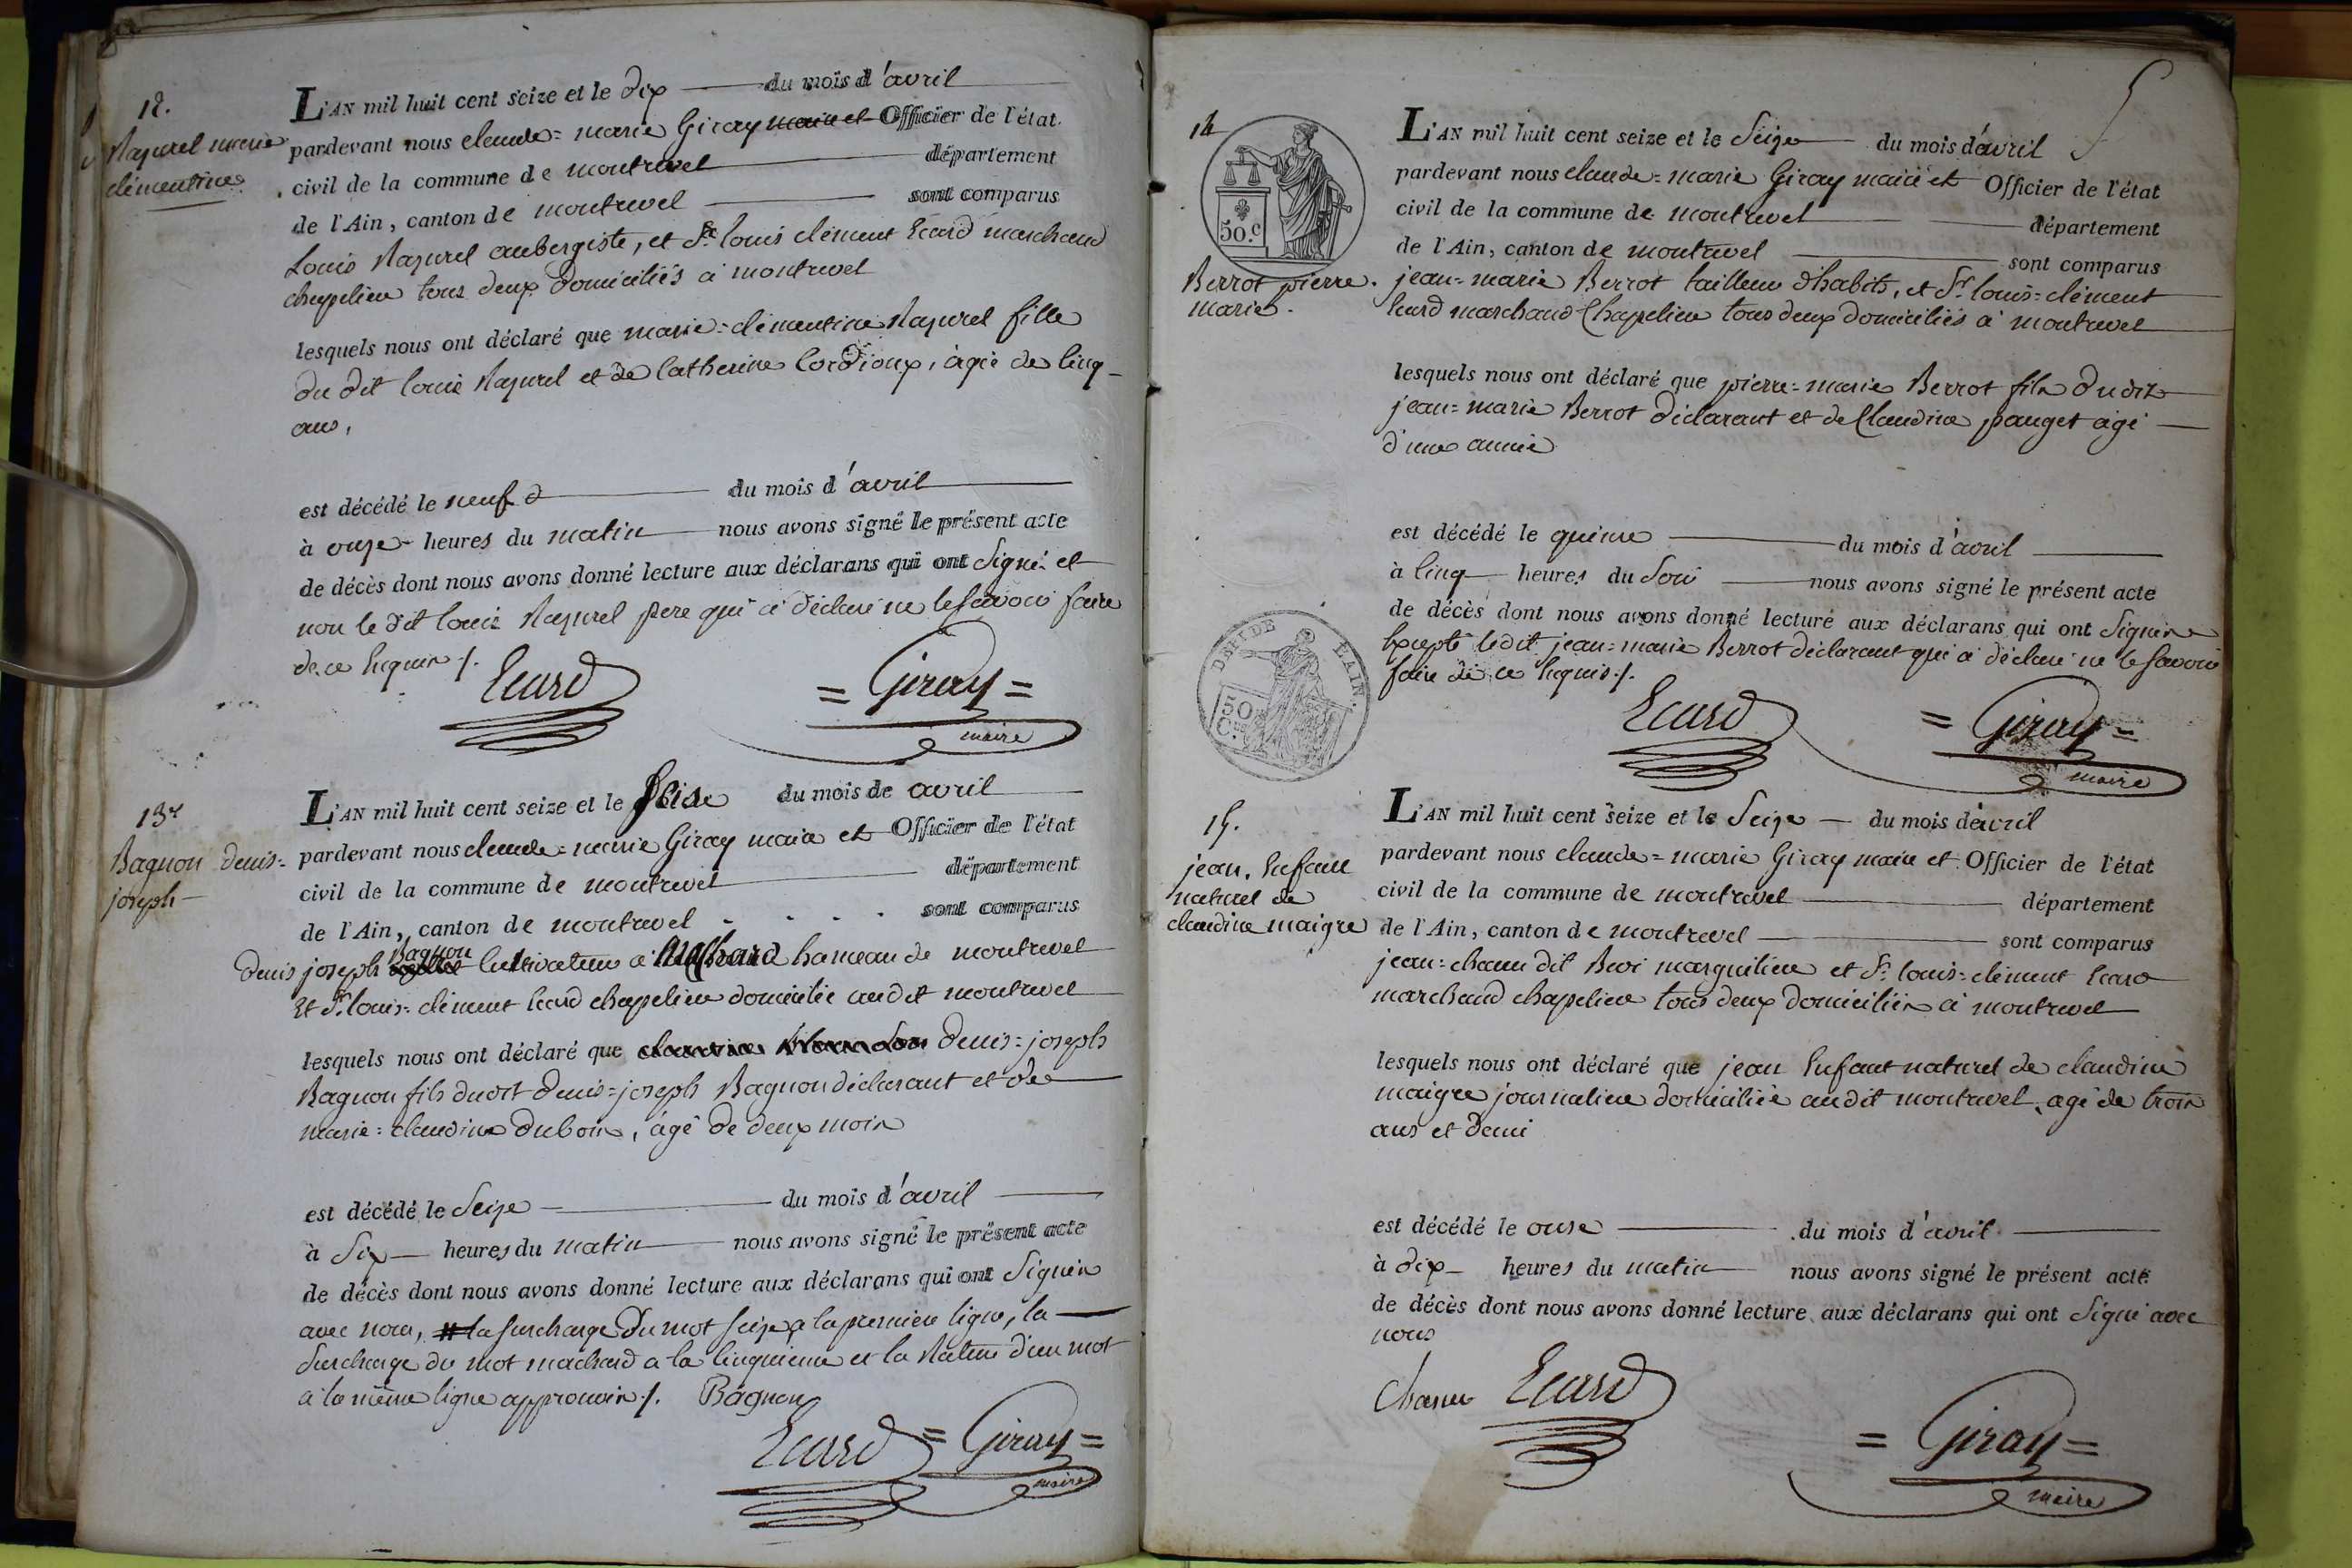 12.
Rapurel marie
clémentine
L'AN mil huit cent seize et le dix du mois d'avril
pardevant nous claude=marie Giray maire et Officier de l'état
civil de la commune de montrevel département
de l'Ain, canton de montrevel sont comparus
Louis Rapurel aubergiste, et Sr. louis clément Ecard marchand
chapelier tous deux domiciliés à montrevel
lesquels nous ont déclaré que marie=clémentine Rapurel fille
du dit louis Rapurel et de Catherine Cordioux, agée de cinq
ans,
est décédé le neuf d du mois d'avril
à onze heures du matin nous avons signé le présent acte
de décès dont nous avons donné lecture aux déclarans qui ont signé et
non le dit louis Rapurel pere qui a déclaré ne le savoir faire
de ce Enquis ./.
Ecard = Giray =
maire
13e
Bagnon denis=
joseph
L'AN mil huit cent seize et le Seize du mois de avril
pardevant nous claude=marie Giray maire et Officier de l'état
civil de la commune de montrevel département
de l'Ain, canton de montrevel sont comparus
denis joseph Bagnon Cultivateur à Machard hameau de montrevel
Et Sr. louis=clément Ecard chapelier domicilié audit montrevel
lesquels nous ont déclaré que denis=joseph
Bagnon fils dudit denis=joseph Bagnon déclarant et de
marie=claudine dubois, agé de deux mois
est décédé le Seize du mois d'avril
à Six heures du matin nous avons signé le présent acte
de décès dont nous avons donné lecture aux déclarans qui ont Signés
avec nous, la surcharge du mot seize a la premiere ligne, la
Surcharge du mot machard a la Cinquieme et la Rature d'un mot
a la même ligne approuvés ./. Bagnon
Ecard = Giray =
maire
14
50.c
Berrot pierre
marie.
L'AN mil huit cent seize et le Seize du mois d'avril
pardevant nous claude=marie Giray maire et Officier de l'état
civil de la commune de montrevel département
de l'Ain, canton de montrevel sont comparus
jean=marie Berrot tailleur d'habits, et Sr. louis=clément
Ecard marchand Chapelier tous deux domiciliés à montrevel
lesquels nous ont déclaré que pierre=marie Berrot fils dudit
jean=marie Berrot déclarant et de Claudine pauget agé
d'une année
est décédé le quinze du mois d'avril
à Cinq heures du Soir nous avons signé le présent acte
de décès dont nous avons donné lecture aux déclarans qui ont Signés
Excepté ledit jean=marie Berrot déclarant qui a déclaré ne le savoir
faire de ce Enquis ./.
DEP. DE L'AIN.
50 C.
Ecard = Giray =
maire
15.
jean, Enfant
naturel de
claudine maigre
L'AN mil huit cent seize et le Seize du mois d'avril
pardevant nous claude=marie Giray maire et Officier de l'état
civil de la commune de montrevel département
de l'Ain, canton de montrevel sont comparus
jean=chanu dit Revi marguilier et Sr. louis=clément Ecard
marchand chapelier tous deux domiciliés à montrevel
lesquels nous ont déclaré que jean Enfant naturel de claudine
maigre journaliere domiciliée audit montrevel, agé de trois
ans et demi
est décédé le onse du mois d'avril
à dix heures du matin nous avons signé le présent acte
de décès dont nous avons donné lecture aux déclarans qui ont Signé avec
nous
Chanu Ecard
= Giray =
maire